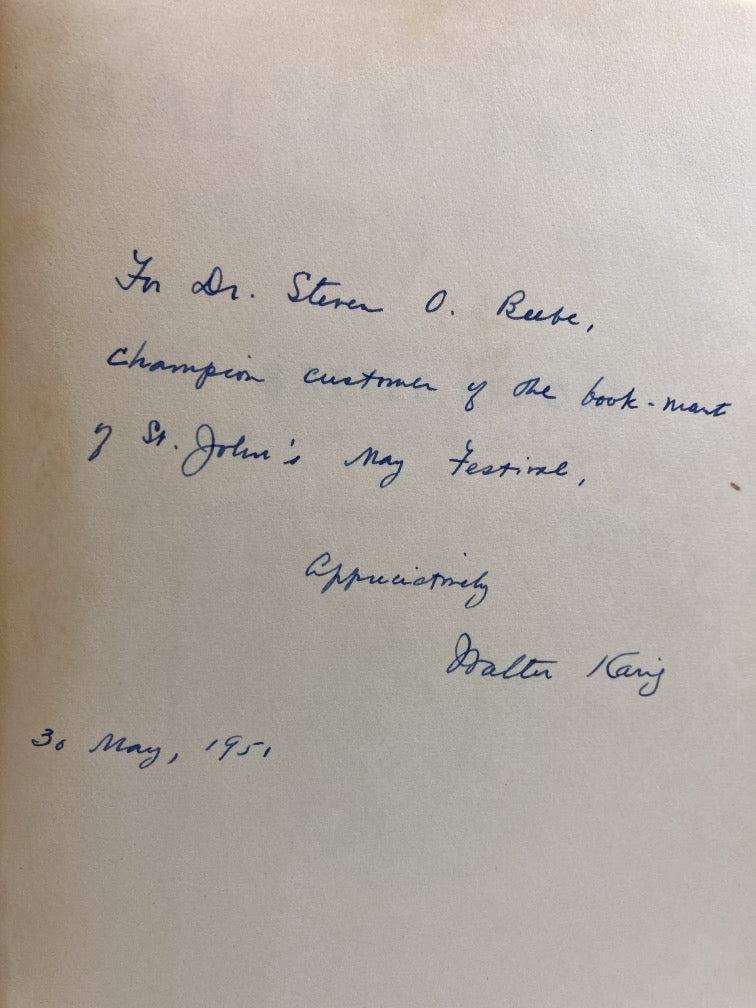 For Dr. Steven O. Beebe,
champion customer of the book-mart
of St. John's May Festival,
Appreciatively
Walter Karig
30 May, 1951